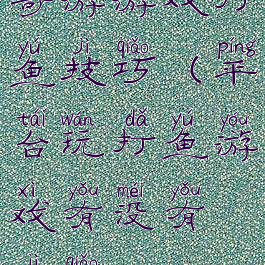 yú jì qiǎo píng
鱼技巧(平
tái wán dǎ yú yóu
台玩打鱼游
xì yǒu méi yǒu
戏有没有
jì qiǎo